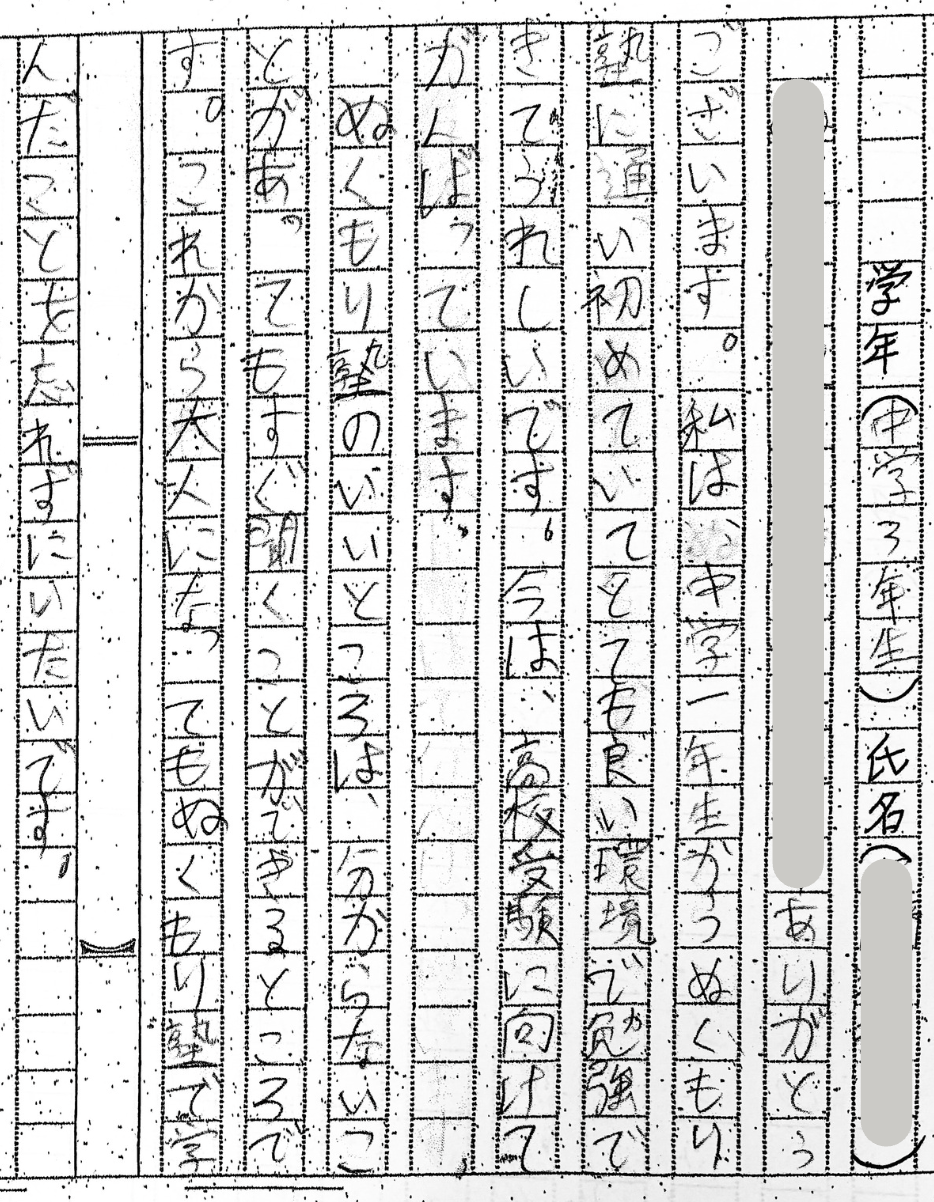 学年（中学３年生）氏名（
ありがとう
ございます。私は、中学一年生からぬくもり
塾に通い初めていてとても良い環境で勉強で
きてうれしいです。今は、高校受験に向けて
がんばっています。
ぬくもり塾のいいところは、分からないこ
とがあってもすぐ聞くことができるところで
す。これから大人になってもぬくもり塾で学
んだことを忘れずにいたいです。